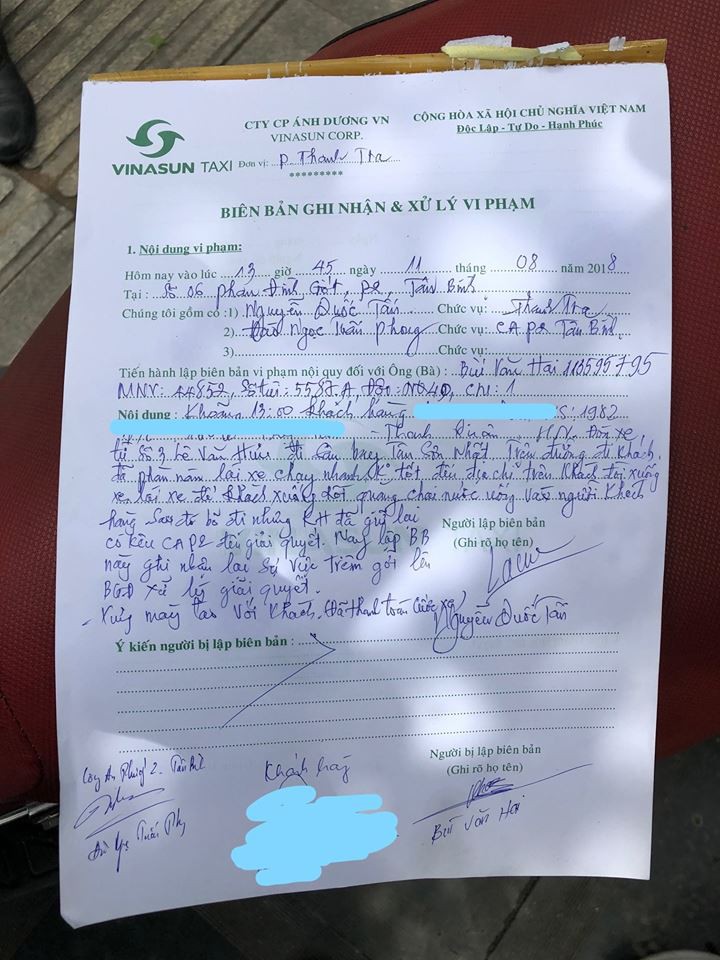 CTY CP ÁNH DƯƠNG VN
VINASUN CORP.
CỘNG HÒA XÃ HỘI CHỦ NGHĨA VIỆT NAM
Độc Lập - Tự Do - Hạnh Phúc
VINASUN TAXI
Đơn vị: P. Thanh Tra
*********
BIÊN BẢN GHI NHẬN & XỬ LÝ VI PHẠM
1. Nội dung vi phạm:
Hôm nay vào lúc 13 giờ 45 ngày 11 tháng 08 năm 2018
Tại : Số 06 Phan Đình Giót, P2, Tân Bình
Chúng tôi gồm có :1) Nguyễn Quốc Tấn Chức vụ: Thanh Tra
2) Ngọc Tuấn Phong Chức vụ: CAP2 Tân Bình
3) Chức vụ:
Tiến hành lập biên bản vi phạm nội quy đối với Ông (Bà) : Bùi Văn Hai 113595795
MNV: 44852, Số tài: 5587A, Đội: , CN: 1
Nội dung : Khoảng 13:00 khách hàng 1982
Thanh Xuân HN. Đón xe
từ Số 3 Lê Văn Hưu đi Sân bay Tân Sơn Nhất Trên đường đi khách
đã phàn nàn lái xe chạy nhanh tốt đến địa chỉ trên khách tôi xuống
xe lái xe để khách xuống quăng chai nước uống vào người khách
hàng Sau đó bỏ đi nhưng KH đã giữ lại
có kêu CAP2 đến giải quyết. Nay lập BB
này ghi nhận lại sự việc trên gởi lên
BGĐ xử lý giải quyết.
- Xưng mày tao với khách. Đã thanh toán cước xe
Người lập biên bản
(Ghi rõ họ tên)
Nguyễn Quốc Tấn
Ý kiến người bị lập biên bản :
Công An Phường 2. Tân Bình
Khách hàng
Người bị lập biên bản
(Ghi rõ họ tên)
Bùi Văn Hai